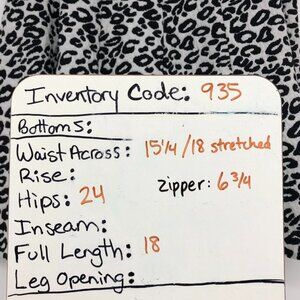 Inventory Code: 935
Bottoms:
Waist Across: 15 1/4 / 18 stretched
Rise:
Zipper: 6 3/4
Hips: 24
Inseam:
Full Length: 18
Leg Opening: